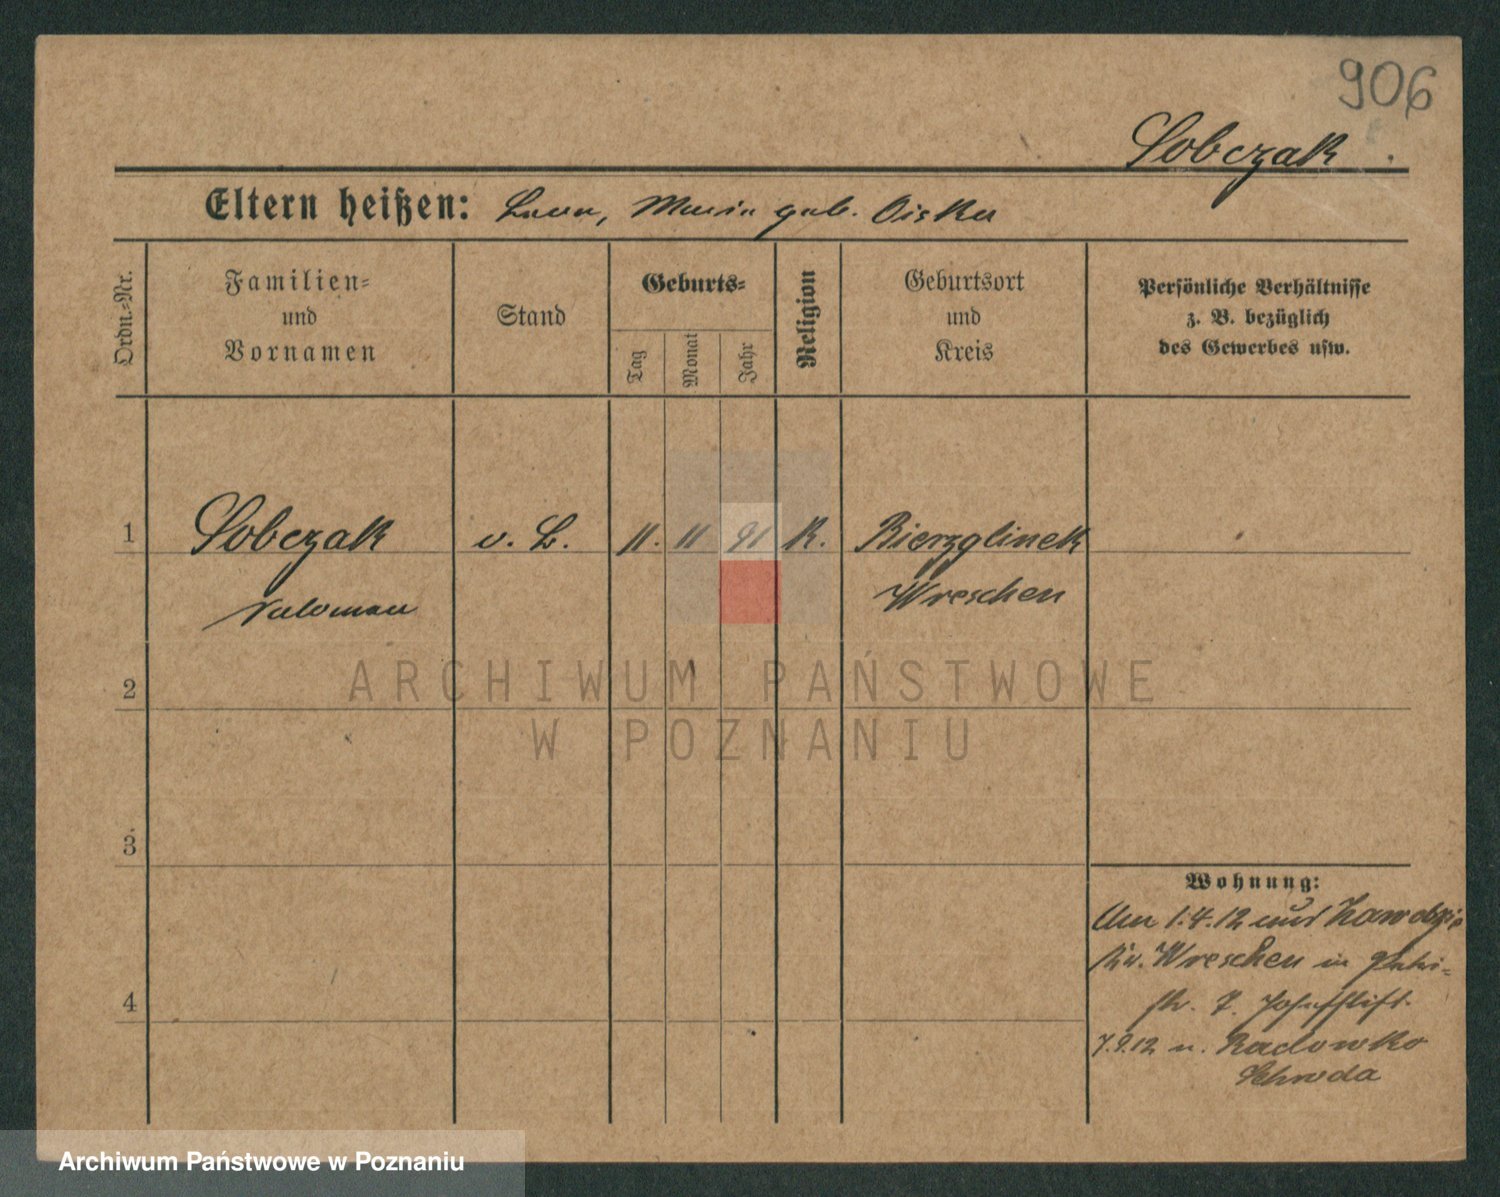 906
Sobczak.
Eltern heißen: Leon, Maria geb. Ciska
Ordn.-Nr.
Familien-
und
Vornamen
Stand
Geburts-
Tag
Monat
Jahr
Religion
Geburtsort
und
Kreis
Persönliche Verhältnisse
z. B. bezüglich
des Gewerbes usw.
1
Sobczak v. L. 11. 11 91 K. Bierzglinek
Wreschen
ARCHIWUM PAŃSTWOWE
W POZNANIU
2
3
4
Wohnung:
Am 1.4.12 aus
Kr. Wreschen in
7. Josefstift
7.9.12 n. Radowko
Schroda
Archiwum Państwowe w Poznaniu